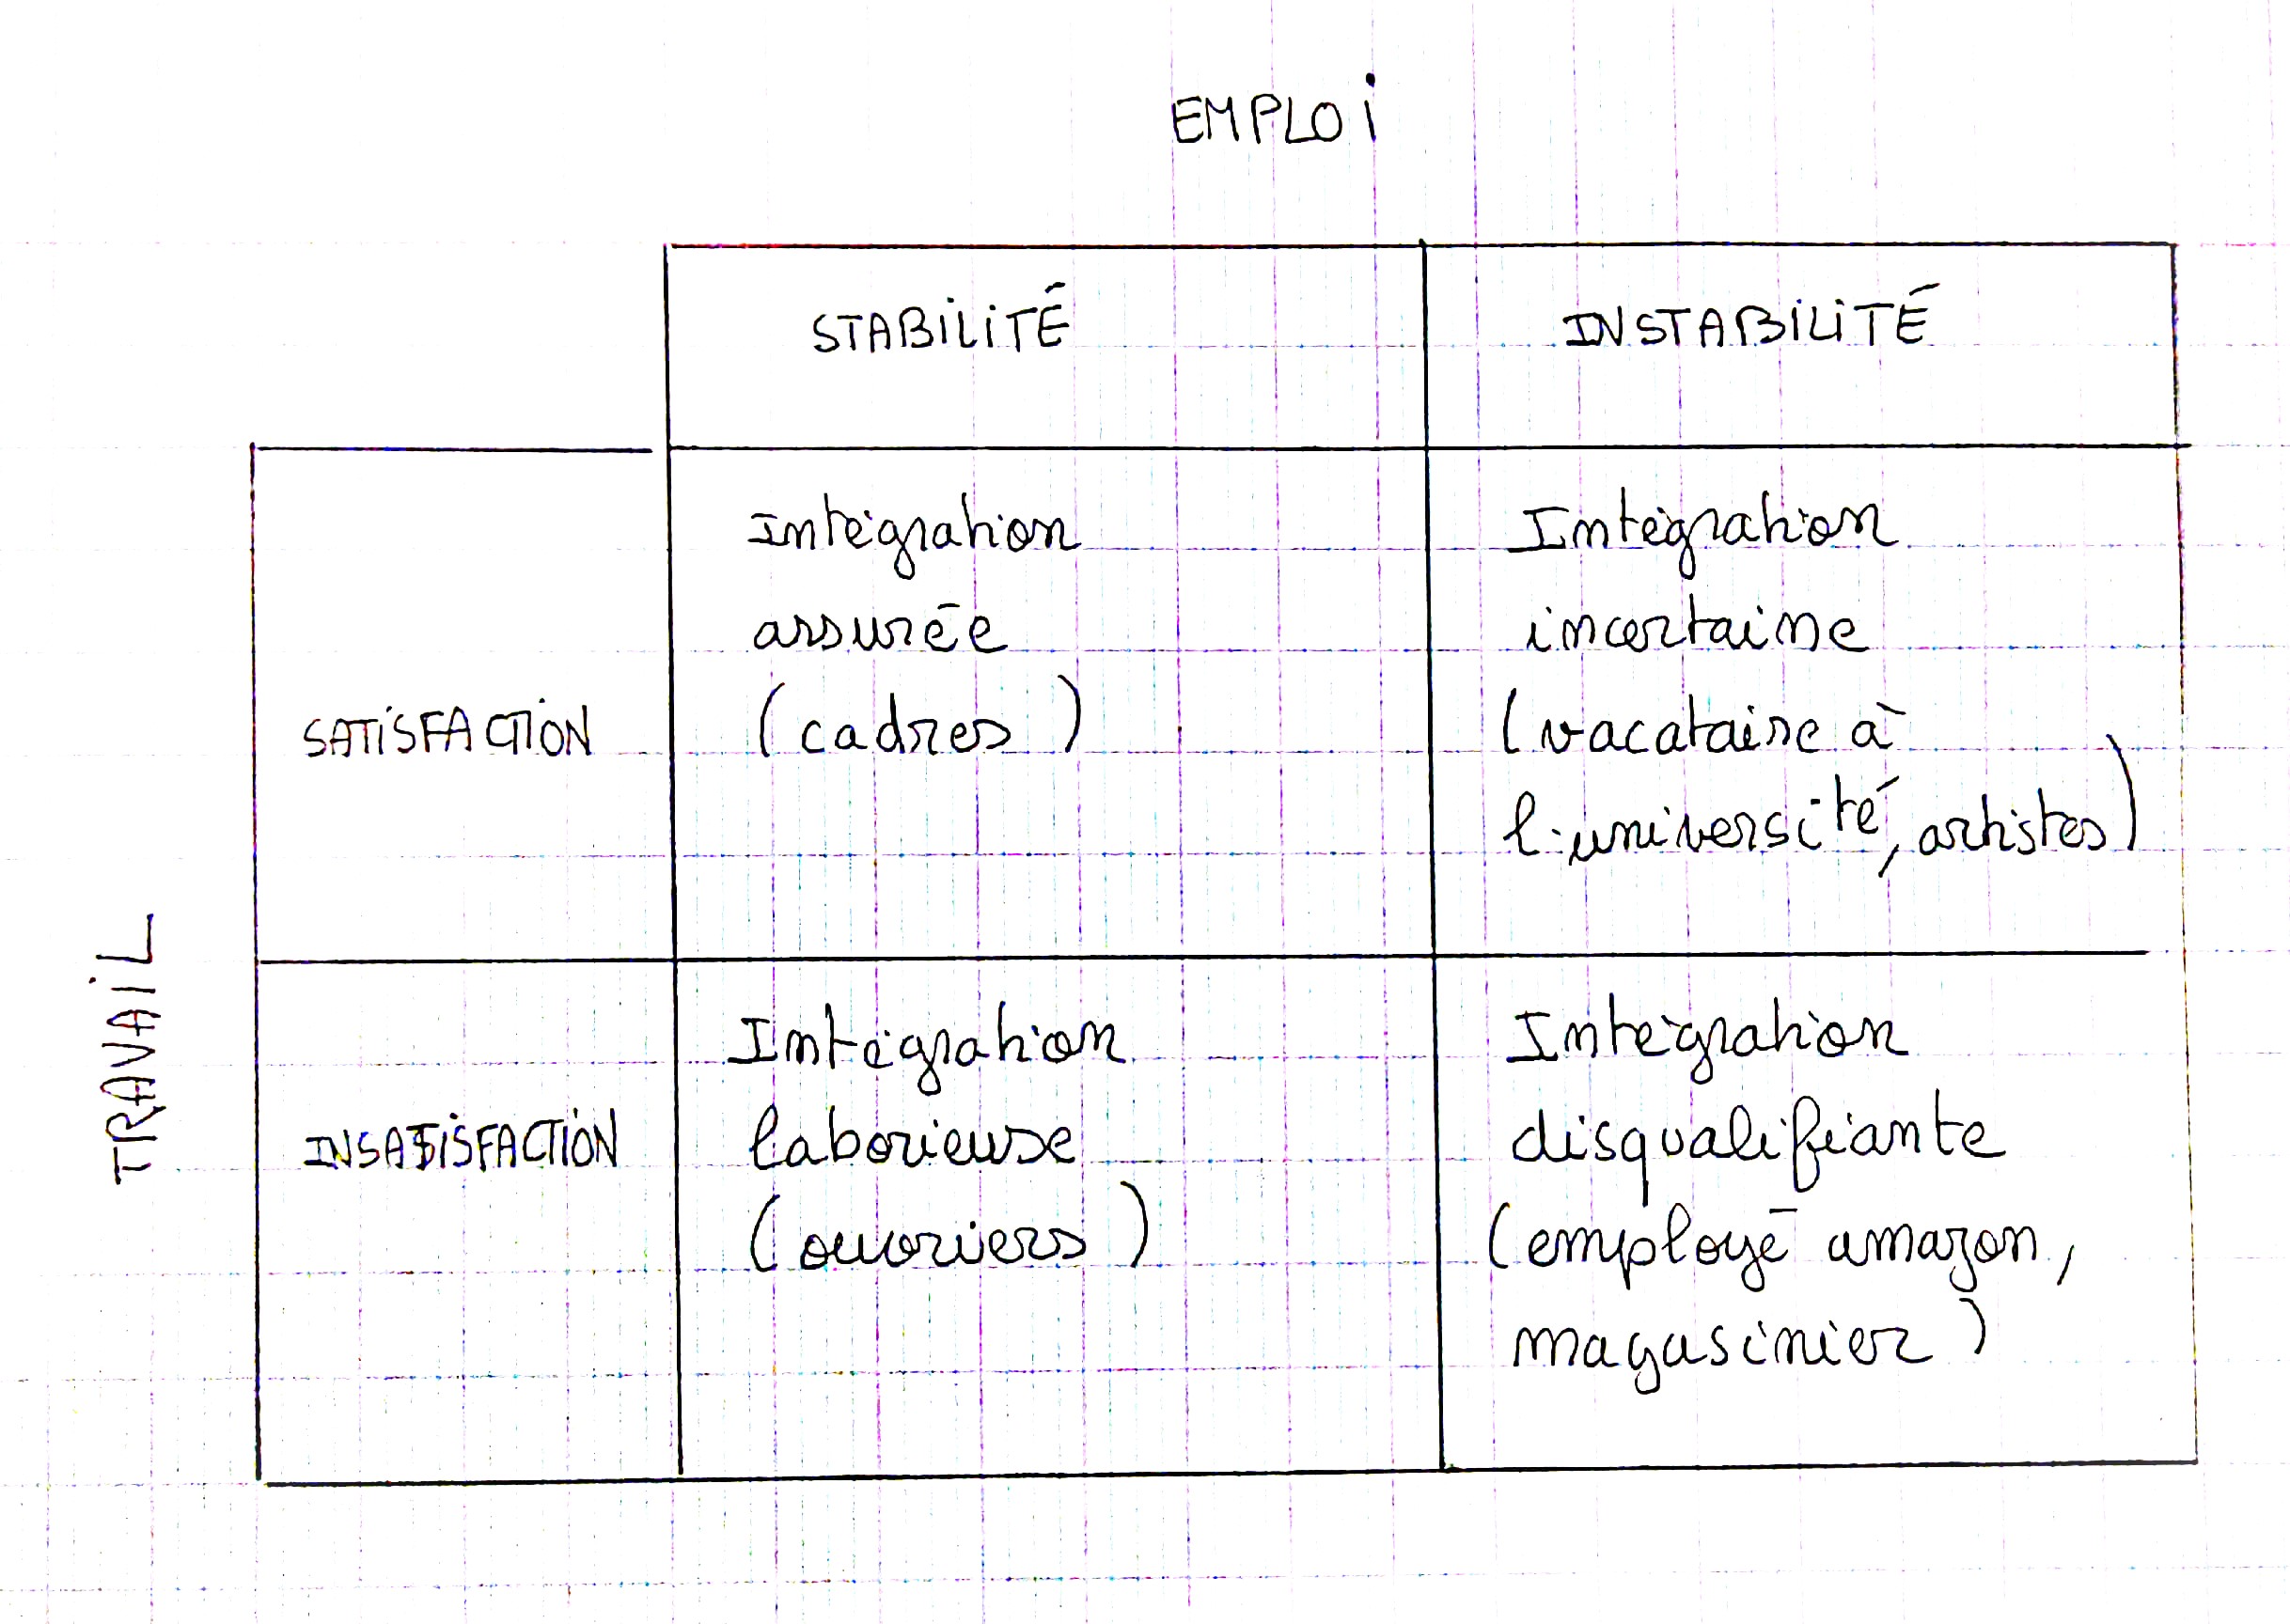 EMPLOI
STABILITÉ
INSTABILITÉ
TRAVAIL
SATISFACTION
Intégration
assurée
(cadres)
Intégration
incertaine
(vacataire à
l'université, artistes)
INSATISFACTION
Intégration
laborieuse
(ouvriers)
Intégration
disqualifiante
(employé amazon,
magasinier)